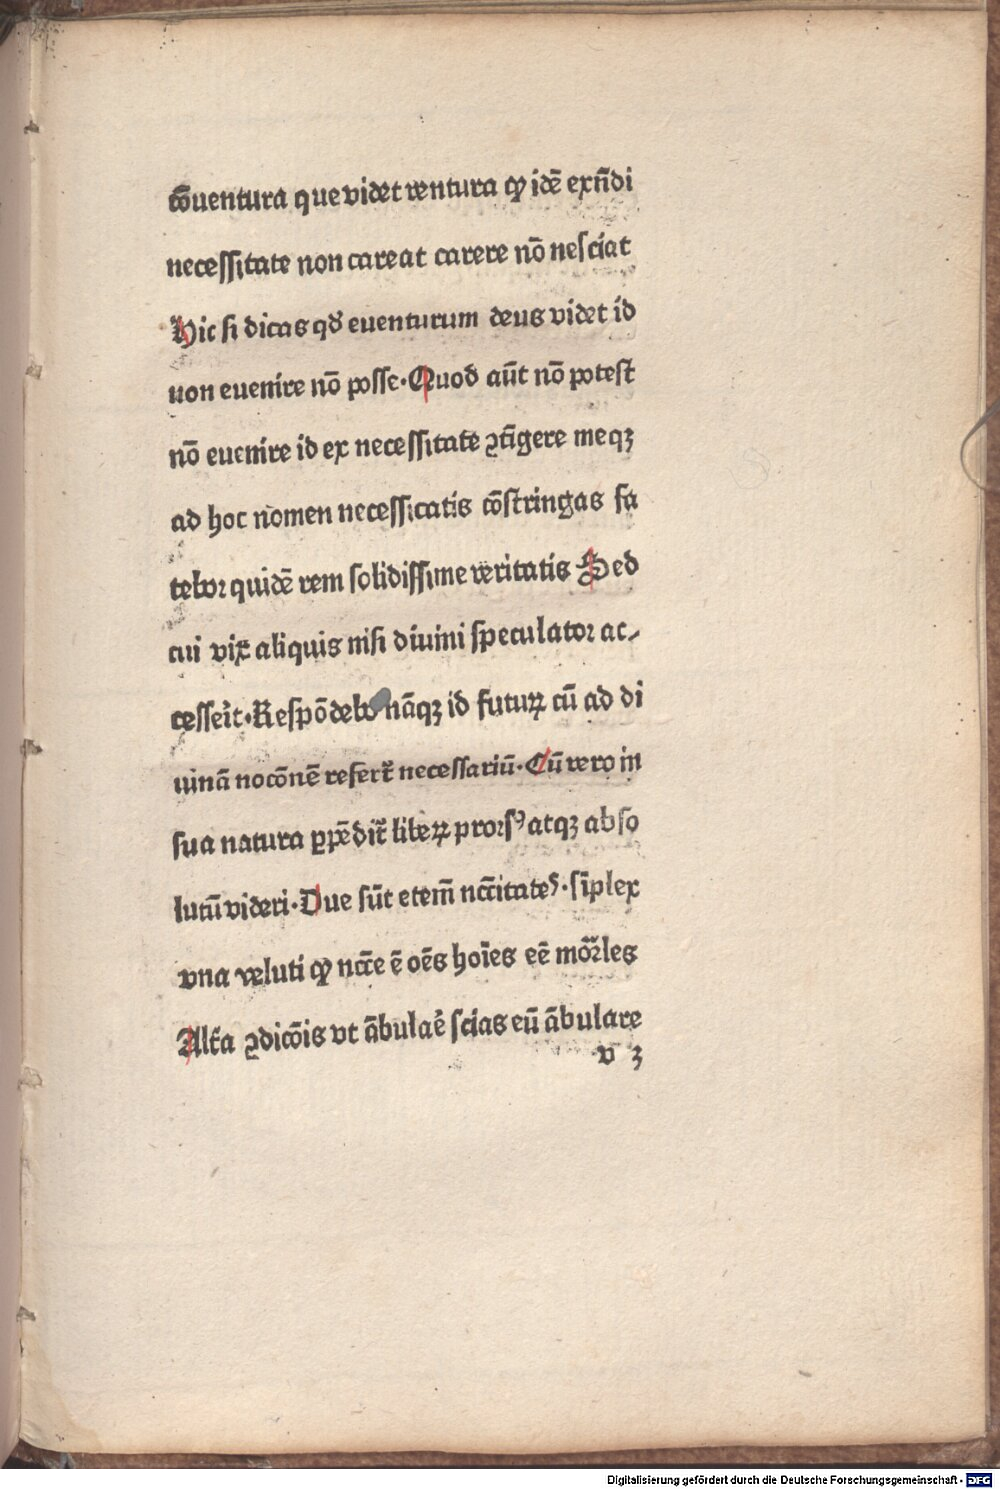 cōuentura que videt ventura ꝙ idē exn̄di
necessitate non careat carere nō nesciat
Hic si dicas qď euenturum deus videt id
non euenire nō posse·Quod aūt nō potest
nō euenire id ex necessitate ꝯtīgere meqꝫ
ad hoc nomen necessicatis cōstringas fa
tebor quidē rem solidissime veritatis Sed
cui vix aliquis nisi diuini speculator ac⸗
cesserit·Respōdebo nāqꝫ id futuꝝ cū ad di
uinā nocōnē refert̄ necessariū·Cū vero in
sua natura ꝑpēdit̄ libeꝝ prorsꝰ atqꝫ abso
lutū videri·Due sūt etem̄ nccītates·sīplex
vna veluti ꝙ ncc̄e ē oēs hoīes eē mōrles
Alt̄a ꝯdicōis vt ābulaē scias eū ābulare
v ꝫ
Digitalisierung gefördert durch die Deutsche Forschungsgemeinschaft - DFG